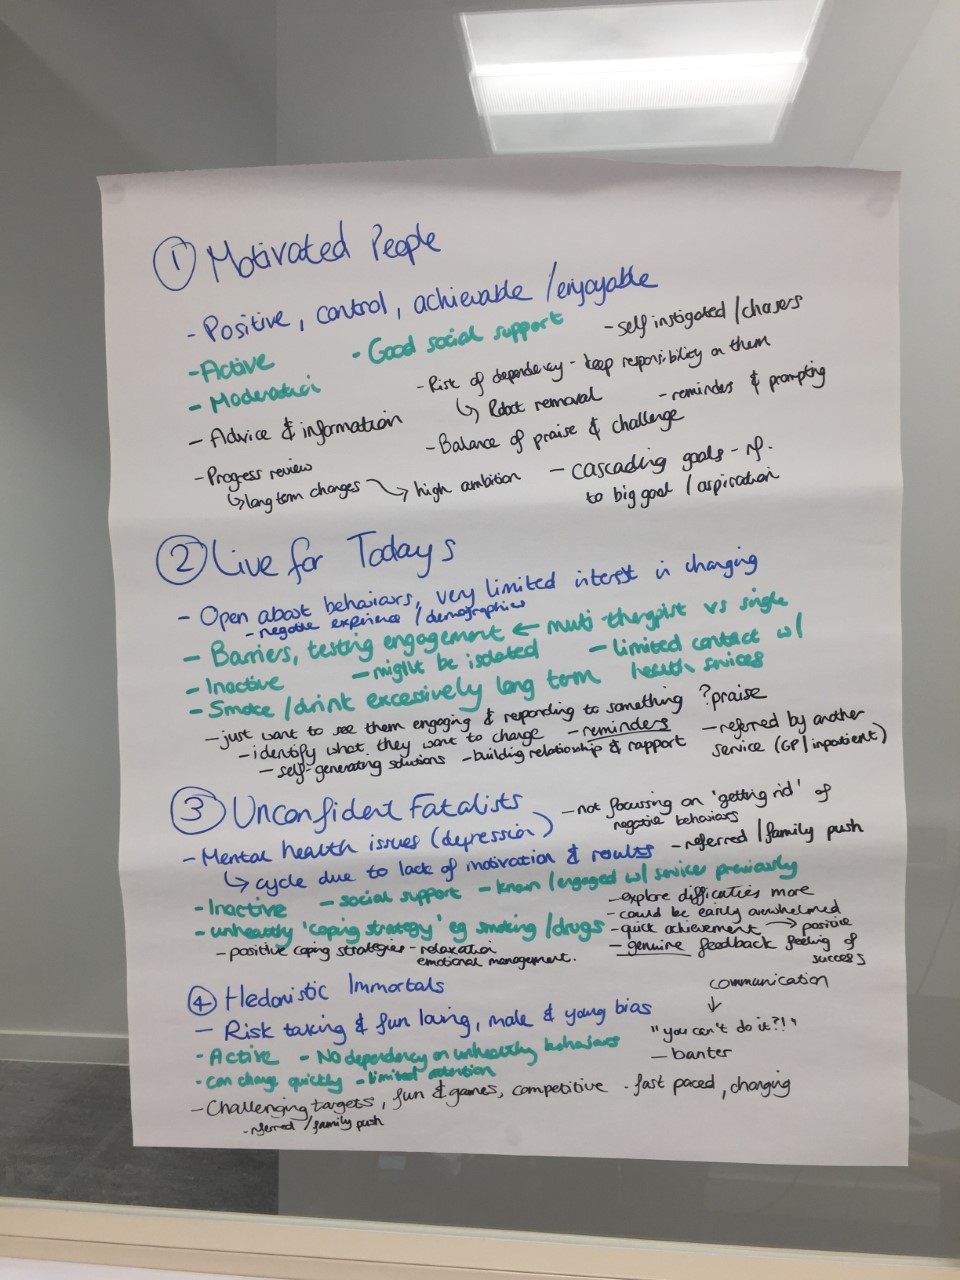 ① Motivated People
- Positive, control, achievable / enjoyable
- Active - Good social support - self instigated / chasers
- Moderation - Risk of dependency - keep responsibility on them
↳ Robot removal - reminders & prompting
- Advice & information - Balance of praise & challenge
- Progress review - cascading goals - rf.
↳ long term changes → high ambition to big goal / aspiration
② Live for Todays
- Open about behaviours, very limited interest in changing
- negative experience / demographics
- Barriers, testing engagement ← multi-therapist vs single
- Inactive - might be isolated - limited contact w/ health services
- Smoke / drink excessively long term
- just want to see them engaging & responding to something ? praise
- identify what they want to change - reminders - referred by another service (GP / inpatient)
- self-generating solutions - building relationship & rapport
③ Unconfident Fatalists - not focussing on 'getting rid' of negative behaviours
- Mental health issues (depression) - referred / family push
↳ cycle due to lack of motivation & results
- Inactive - social support - known / engaged w/ services previously
- unhealthy 'coping strategy' eg smoking / drugs
- explore difficulties more
- could be easily overwhelmed
- quick achievement → positive feeling of success
- genuine feedback
- positive coping strategies - relaxation
emotional management.
④ Hedonistic Immortals
- Risk taking & fun loving, male & young bias
communication
↓
"you can't do it?!"
- banter
- Active - No dependency on unhealthy behaviours
- can change quickly - limited attention
- Challenging targets, fun & games, competitive - fast paced, changing
- referred / family push